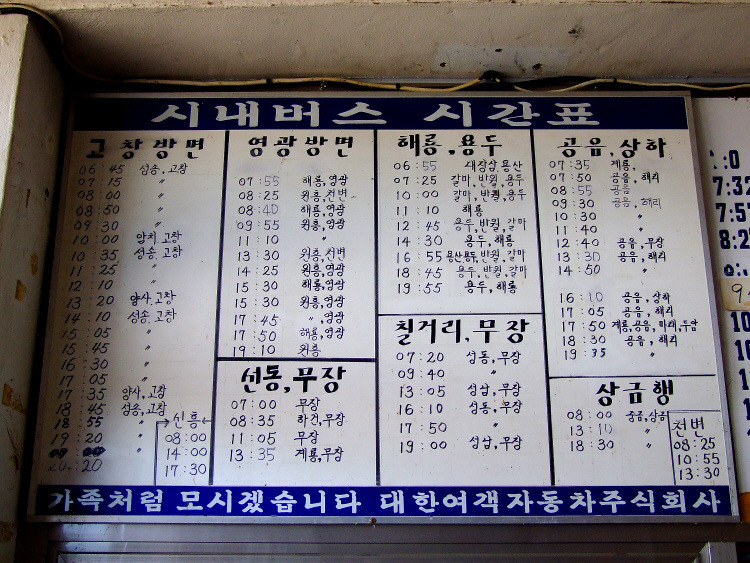 시내버스 시간표
고창방면
06:45 성송,고창
07:15 〃
08:00 〃
08:50 〃
09:30 〃
10:00 암치,고창
10:35 성송,고창
11:25 〃
12:10 〃
13:20 양사,고창
14:10 성송,고창
15:05 〃
15:45 〃
16:30 〃
17:05 〃
17:35 양사,고창
18:45 성송,고창
18:55 〃
19:20 〃
20:20
신흥
08:00
14:00
17:30
영광방면
07:55 해룡,영광
08:25 원흥,천변
08:40 해룡,영광
09:55 원흥,영광
11:10 〃
13:30 원흥,천변
14:25 원흥,영광
15:30 해룡,영광
15:30 원흥,영광
17:45 〃,영광
17:50 해룡,영광
19:10 원흥
선동,무장
07:00 무장
08:35 하건,무장
11:05 무장
13:35 계룡,무장
해룡,용두
06:55 대장삼,용산
07:25 갈마,반월,용두
10:00 갈마,반월,용두
11:10 해룡
12:45 용두,반월,갈마
14:30 용두,해룡
16:55 용산용두,반월,갈마
18:45 용두,반월,갈마
19:55 용두,해룡
칠거리,무장
07:20 성동,무장
09:40 〃
13:05 성남,무장
16:10 성동,무장
17:50 〃
19:00 성남,무장
공음,상하
07:35 계룡,
07:50 공음,해리
08:55 공음
09:30 공음,해리
10:30 〃
11:40 〃
12:40 공음,무장
13:30 공음,해리
14:50 〃
16:10 공음,상하
17:05 공음,해리
17:50 계룡,공음,마래,두암
18:30 공음,해리
19:35 〃
상금행
08:00 중금,상금
13:10 〃
18:30 〃
천변
08:25
10:55
13:30
가족처럼 모시겠습니다 대한여객자동차주식회사